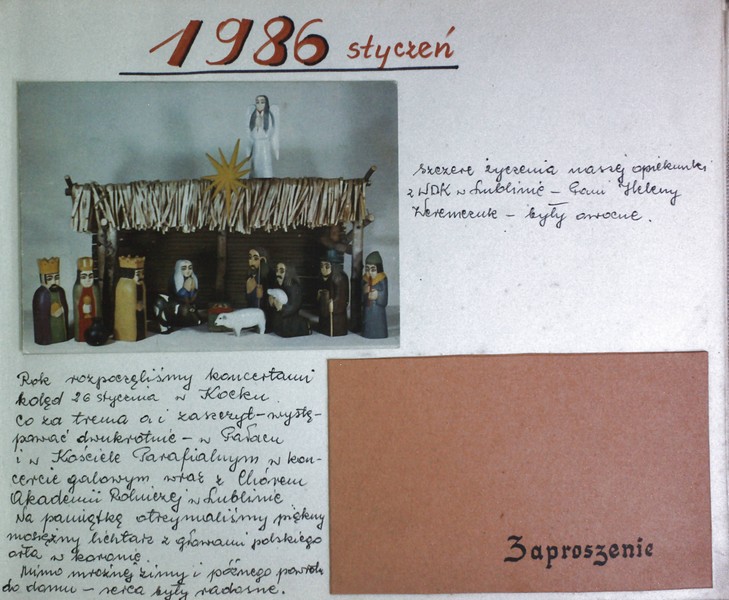 1986 styczeń
szczere życzenia naszej opiekunki
z WDK w Lublinie – Pani Heleny
Weremczuk – były owocne.
Rok rozpoczęliśmy koncertami
kolęd 26 stycznia w Kocku.
Co za trema a i zaszczyt – wystę-
pować dwukrotnie – w Pałacu
i w Kościele Parafialnym w kon-
cercie galowym wraz z Chórem
Akademii Rolniczej w Lublinie
Na pamiątkę otrzymaliśmy piękny
mosiężny lichtarz z głowami polskiego
orła w koronie.
Mimo mroźnej zimy i późnego powrotu
do domu – serca były radosne.
Zaproszenie